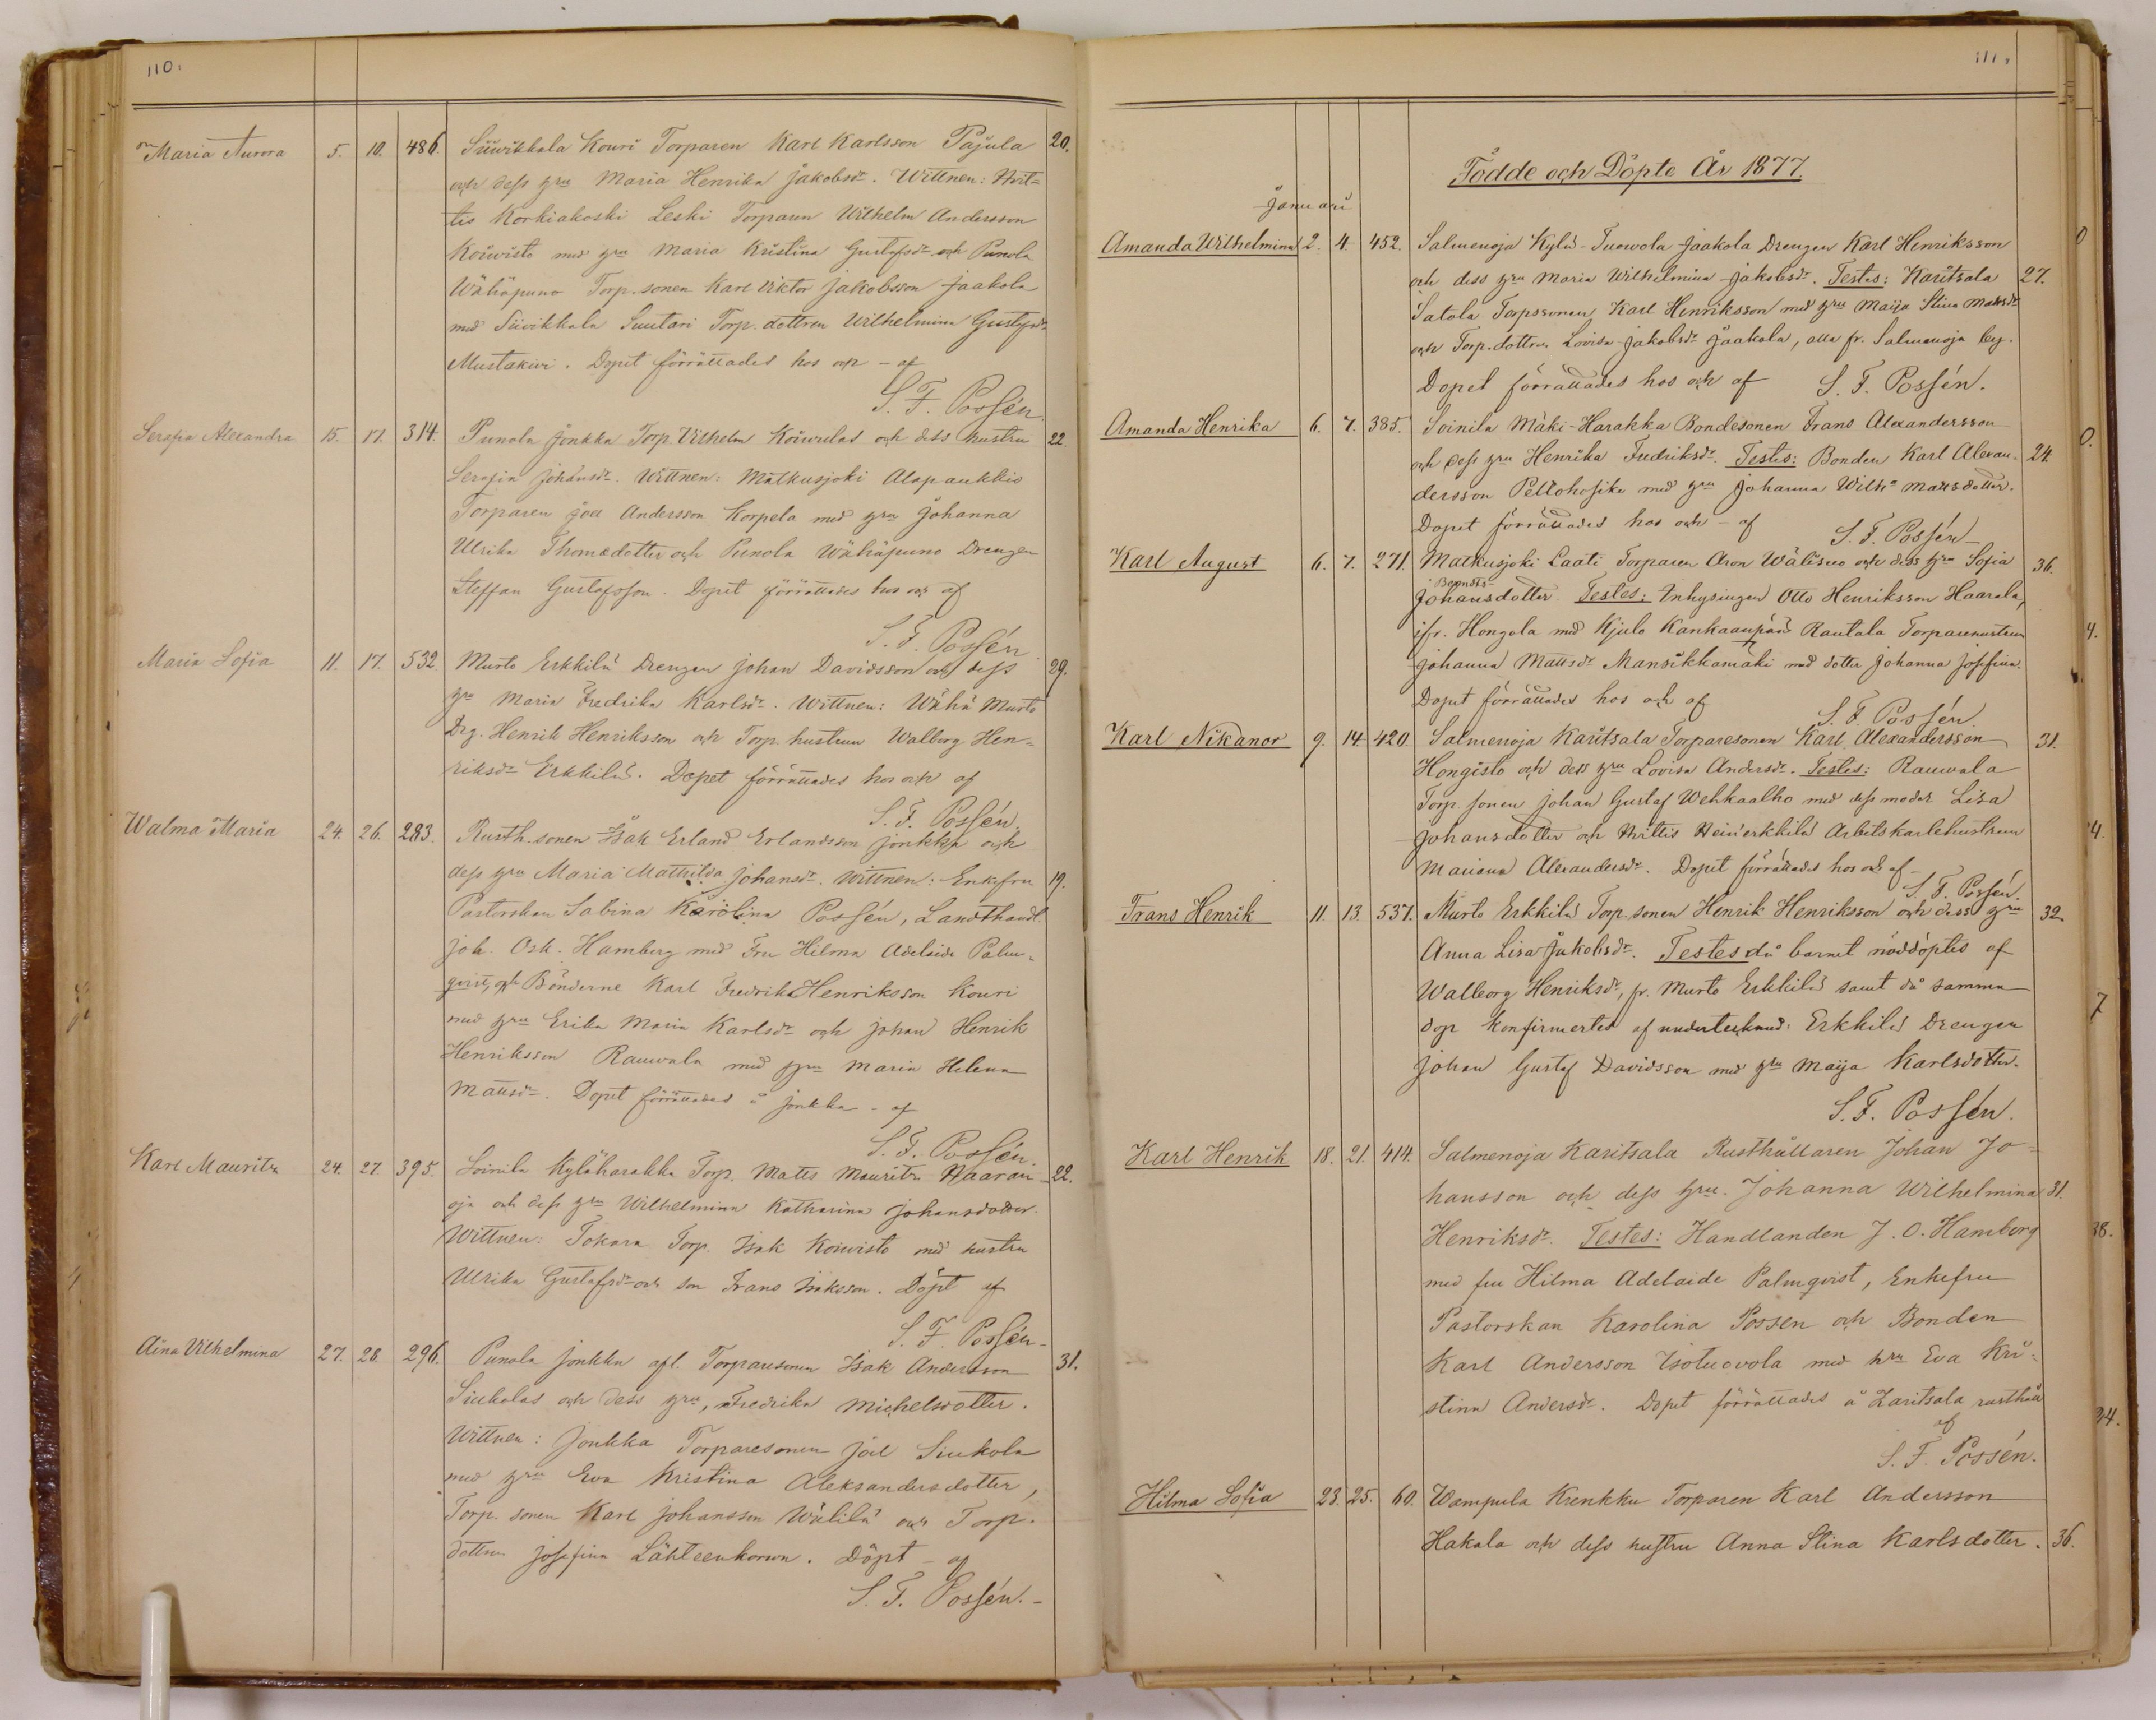 110.
Maria Aurora 5. 10. 486. Siiwikkala Kouri Torparen Karl Karlsson Pajula 20.
och dess hru Maria Henrika Jakobsdr. Wittnen: Hvit=
tis Korkiakoski Leski Torparen Wilhelm Andersson
Koiwisto med hru Maria Kristina Gustafsdr och Punola
Wähäpuno Torp.sonen Karl Viktor Jakobsson Jaakola
med Siivikkala Suutari Torp.dottren Wilhelmina Gustafsdr
Mustakivi. Dopet förrättades hos och - af
S. F. Possén.
Serafia Alexandra 15. 17. 314. Punola Jonkka Torp. Vilhelm Koiwulas och dess hustru 22
Serafia Johansdr. Wittnen: Matkusjoki Alapaukkio
Torparen Joel Andersson Korpela med hru Johanna
Ulrika Thomedotter och Punola Wähäpuno Drengen
Steffan Gustafsson. Dopet förrättades hos och af
S. F. Possén
Maria Sofia 11. 17. 532. Murto Erkkilä Drengen Johan Davidsson och dess 29.
hru Maria Fredrika Karlsdr. Wittnen: Wähä Murto
Drg. Henrik Henriksson och Torp. hustrun Walborg Hen=
riksdr Erkkilä. Dopet förrättades hos och af
S. F. Possén.
Walma Maria 24. 26. 283. Rusth.sonen Isak Erland Erlandsson Jonkka och
dess hru Maria Mathilda Johansdr. Wittnen: Enkefru 19.
Pastorskan Sabina Karolina Possén, Landthandl.
Joh. Osk. Hamberg med Fru Hilma Adelaide Palm=
qvist, och Bönderne Karl Fredrik Henriksson Kouri
med hru Erika Maria Karlsdr och Johan Henrik
Henriksson Rauwala med hru Maria Helena
Mattsdr. Dopet förrättades å Jonkka - af
S. F. Possén.
Karl Mauritz 24. 27. 395. Soinila Kyläharakka Torp. Matts Mauritz Haaran= 22.
oja och dess hru Wilhelmina Katharina Johansdotter.
Wittnen: Tokara Torp. Isak Koiwisto med hustru
Ulrika Gustafsdr och son Frans Isaksson. Döpt af
S. F. Possén -
Aina Vilhelmina 27. 28. 296. Punola Jonkka afl. Torparesonen Isak Andersson 31.
Siukolas och dess hru, Fredrika Michelsdotter.
Wittnen: Jonkka Torparesonen Joel Siukola
med hru Eva Kristina Aleksandersdotter,
Torp. sonen Karl Johansson Wälilä och Torp.
dottren Josefina Lähteenkorva. Döpt - af
S. F. Possén. -
111.
Födde och Döpte År 1877.
Januari
Amanda Wilhelmina 2. 4. 452. Salmenoja Kylä-Tuowola Jaakola Drengen Karl Henriksson
och dess hru Maria Wilhelmina Jakobsdr. Testes: Karitsala 27.
Satola Torpssonen Karl Henriksson med hru Maija Stina Mattsdr
och Torp.dottren Lovisa Jakobsdr Jaakola, alla fr. Salmenoja by.
Dopet förrättades hos och af S. F. Possén.
Amanda Henrika 6. 7. 385. Soinila Mäki-Harakka Bondesonen Frans Alexandersson
och dess hru Henrika Fredriksdr. Testes: Bonden Karl Alexan= 24.
dersson Peltohosike med hru Johanna Wilha Mattsdotter.
Dopet förrättades hos och - af S. F. Possén -
Karl August 6. 7. 271. Matkusjoki Laati Torparen Aron Wälisuo och dess hru Sofia 36.
Johansdotter. Testes: Inhysingen Otto Henriksson Haarala,
ifr. Hongola med Kjulo Kankaanpää Rautala Torparehustrun
Johanna Mattsdr Mansikkamäki med dotter Johanna Josefina.
Dopet förrättades hos och af
S. F. Possén.
Karl Nikanor 9. 14. 420. Salmenoja Karitsala Torparesonen Karl Alexandersson 31.
Hongisto och dess hru Lovisa Andersdr. Testes: Rauwala
Torp. sonen Johan Gustaf Wehkaalho med dess moder Lisa
Johansdotter och Hvittis Heinerkkilä Arbetskarlehustrun
Mariana Alexandersdr. Dopet förrättades hos och af -
S. F. Possén.
Frans Henrik 11. 13. 537. Murto Erkkilä Torp.sonen Henrik Henriksson och dess hru 32.
Anna Lisa Jakobsdr. Testes då barnet nöddöptes af
Walborg Henriksdr, fr. Murto Erkkilä samt då samma
dop konfirmertes af undertecknad: Erkkilä Drengen
Johan Gustaf Davidsson med hru Maija Karlsdotter.
S. F. Possén.
Karl Henrik 18. 21. 414. Salmenoja Karitsala Rusthållaren Johan Jo=
hansson och dess hru. Johanna Wilhelmina 31.
Henriksdr. Testes: Handlanden J. O. Hamberg
med fru Hilma Adelaide Palmqvist, Enkefru
Pastorskan Karolina Possen och Bonden
Karl Andersson Isotuovola med hru Eva Kri=
stina Andersdr. Dopet förrättades å Karitsala rusthåll
af
S. F. Possén.
Hilma Sofia 23. 25. 60. Wampula Krenkku Torparen Karl Andersson
Hakala och dess hustru Anna Stina Karlsdotter. 36.